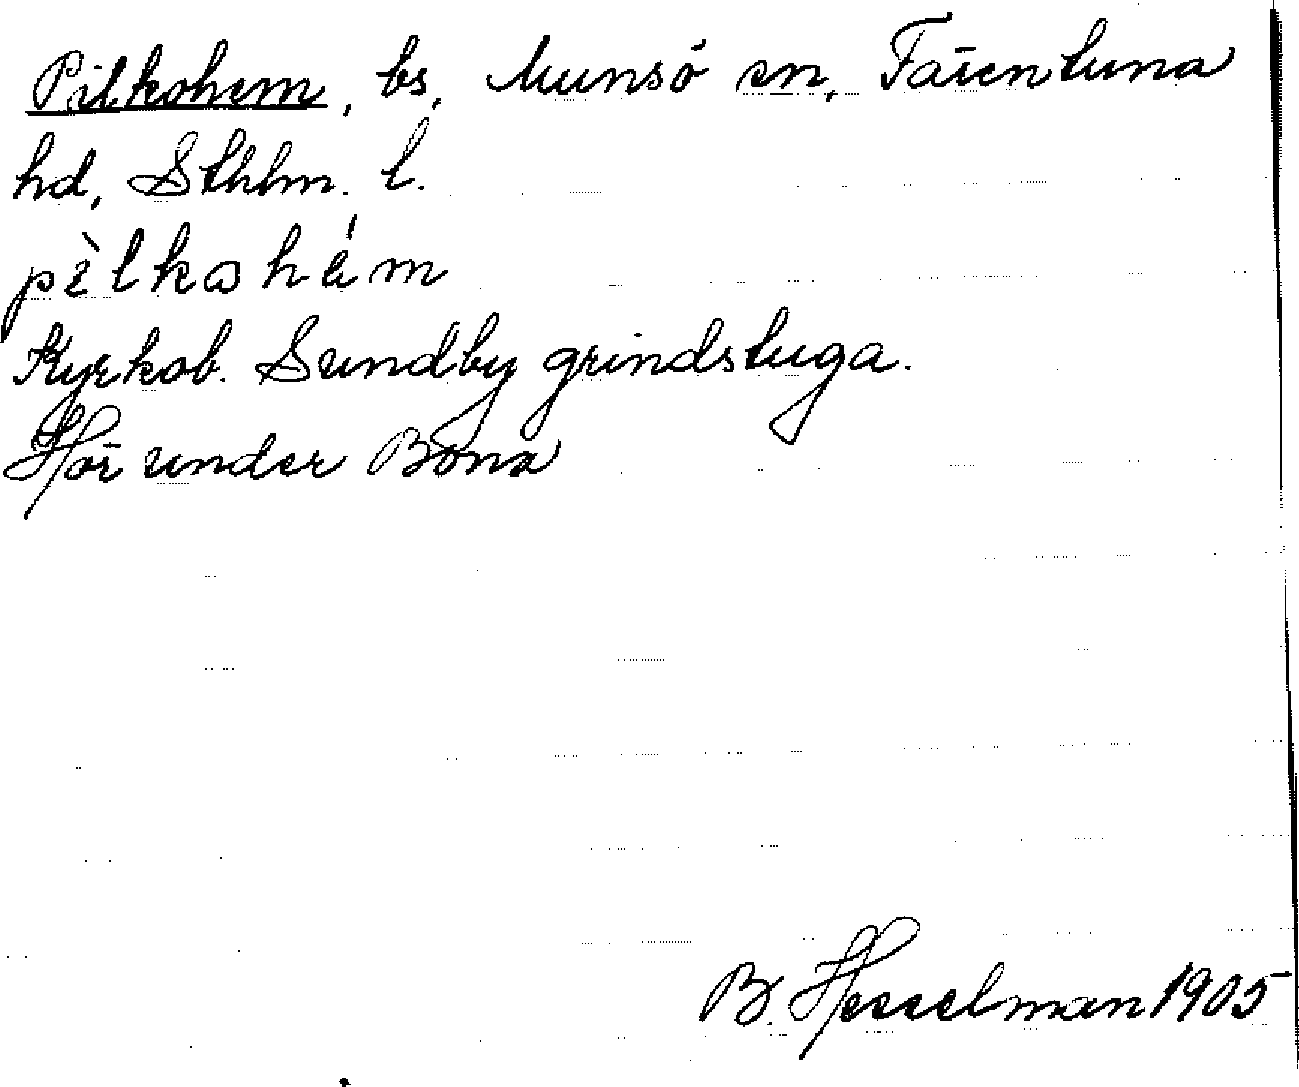 Pilkohem, bs, Munsö sn, Färentuna
hd, Sthlm. l.
pìlkɷhém
Kyrkob. Sundby grindstuga.
Hör under Bona
B. Hesselman 1905